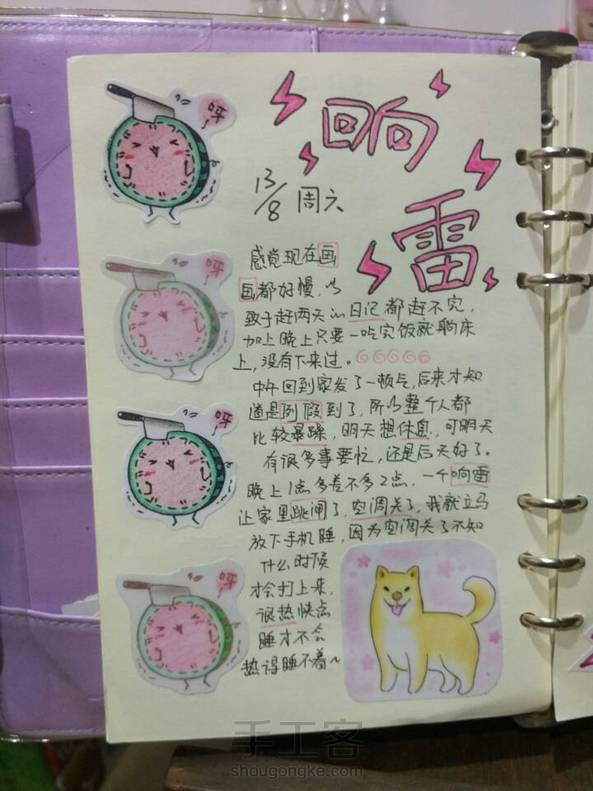 回向
雷
13/8 周六
感觉现在画
画都好慢,以
致于赶两天的日记都赶不完,
加上晚上只要一吃完饭就躺床
上,没有下来过。
中午回到家发了一顿气,后来才知
道是例假到了,所以整个人都
比较暴躁,明天想休息,可明天
有很多事要忙,还是后天好了。
晚上1点多差不多2点,一个响雷
让家里跳闸了,空调关了,我就立马
放下手机睡,因为空调关了不知
什么时候
才会打上来,
很热快点
睡才不会
热得睡不着~
呀
呀
呀
呀
手工客
shougongke.com